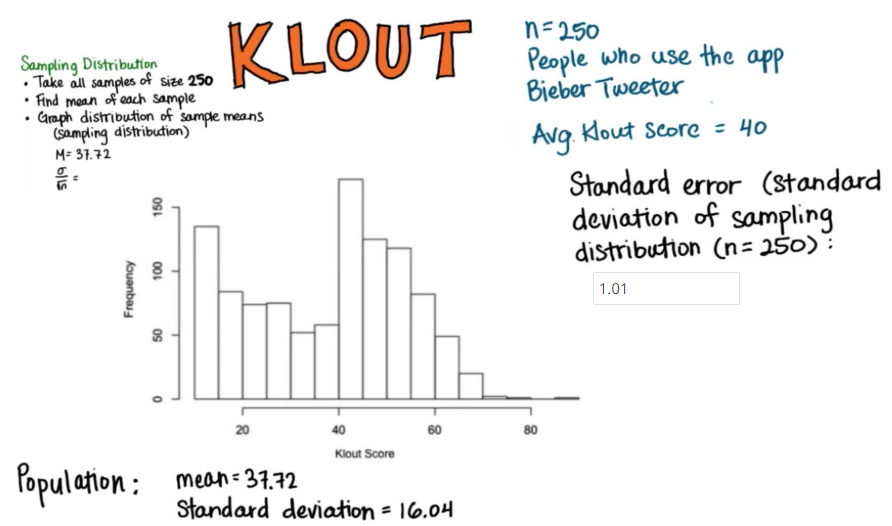 KLOUT
Sampling Distribution
• Take all samples of size 250
• Find mean of each sample
• Graph distribution of sample means
(sampling distribution)
M = 37.72
σ/√n =
n = 250
People who use the app
Bieber Tweeter
Avg. Klout score = 40
Standard error (standard
deviation of sampling
distribution (n = 250) :
1.01
Frequency
150
100
50
0
20 40 60 80
Klout Score
Population : mean = 37.72
Standard deviation = 16.04